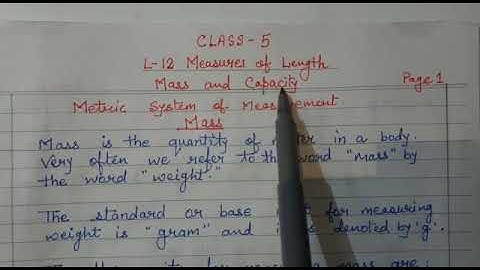 CLASS - 5
L-12 Measures of Length
Mass and Capacity
Page 1
Metric System of Measurement
Mass
Mass is the quantity of in a body.
Very often we refer to the word "mass" by
the word "weight."
The standard or base for measuring
weight is "gram" and is denoted by 'g'.